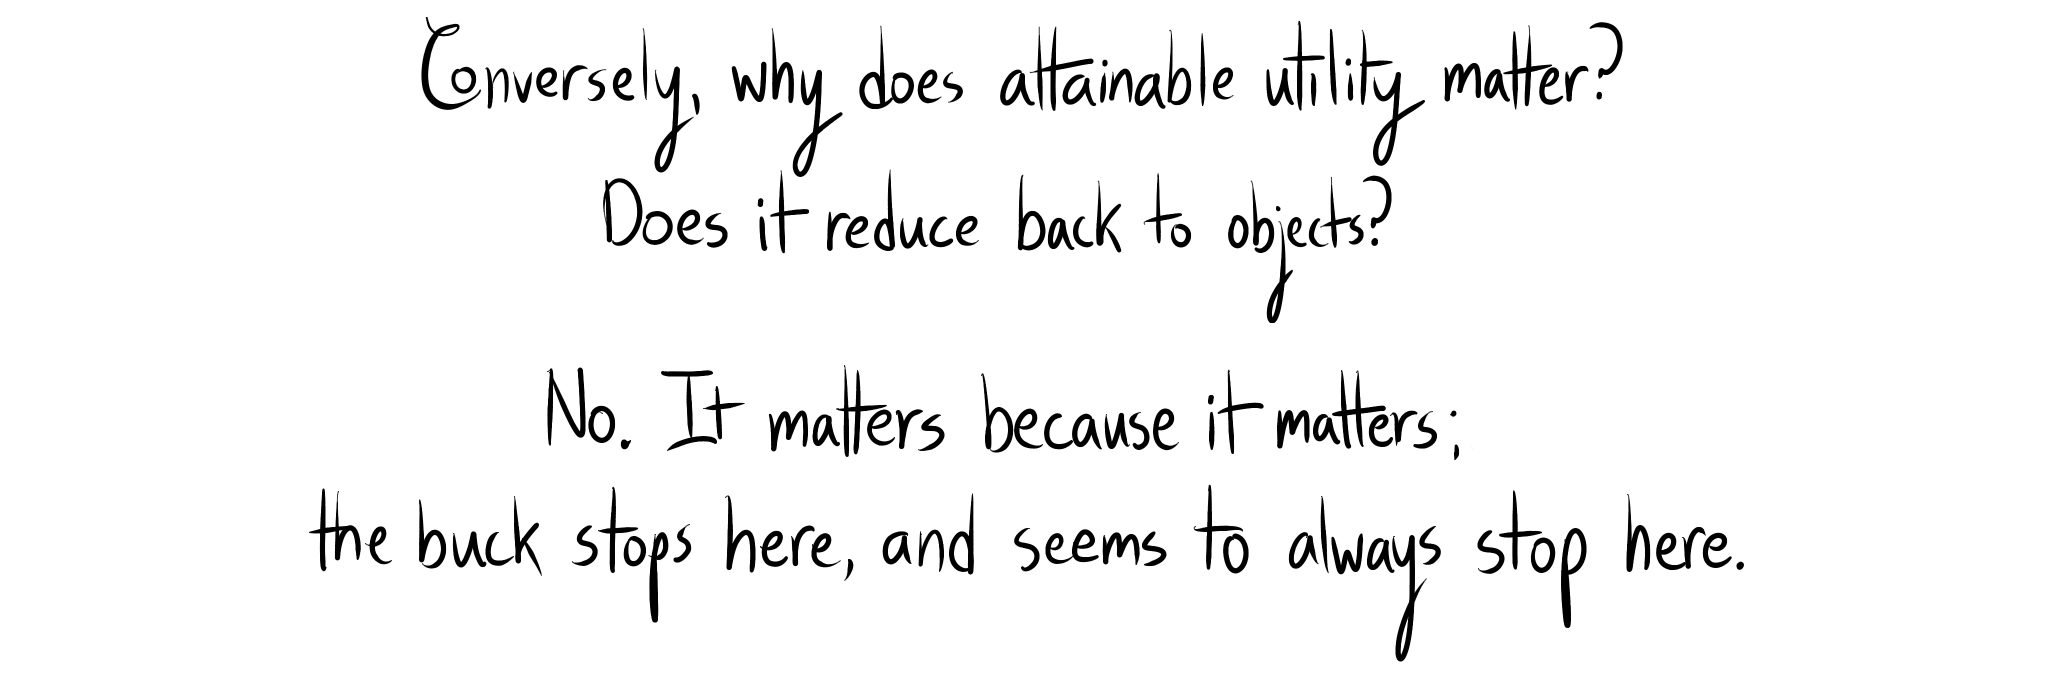 Conversely, why does attainable utility matter?
Does it reduce back to objects?
No. It matters because it matters;
the buck stops here, and seems to always stop here.